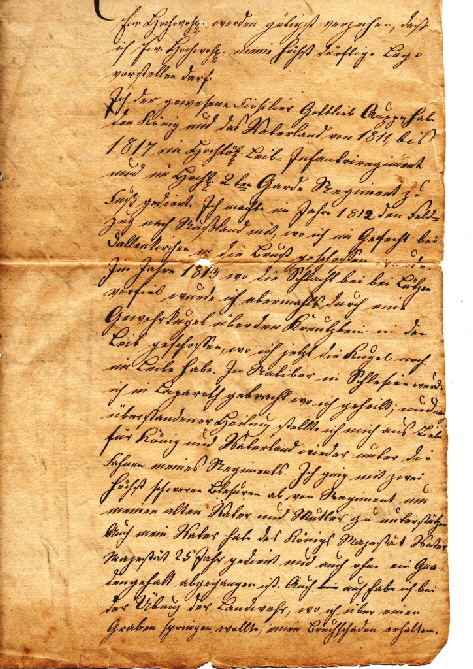 Ew. Hochwohlg. werden gütigst verzeihen, daß
ich Ew. Hochwohlg. meine höchst dürftige Lage
vorstellen darf.
Ich der gewesene Füsilier Gottlieb Auppe habe
dem König und das Vaterland von 1811 bis
1817 im Hochlöb. Leib. Infanterieregiment
und im Hochl. 2ten Garde Regiment zu
Fuß gedient. Ich machte im Jahre 1812 den Feld-
zug nach Rußland mit, wo ich im Gefecht bei
Dallenkirchen in die Brust geschossen wurde
Im Jahre 1813 wo die Schlacht bei bei Lützen
vorfiel wurde ich abermahls durch eine
Gewehrkugel über den Kreutzbein in den
Leib geschossen, wo ich jetzt die Kugel noch
im Leibe habe. In Ratibor in Schlesien wurde
ich in Lazareth gebracht wo ich geheilt, und nach
überstandener Heilung stellte ich mich aus Liebe
für König und Vaterland wieder unter die
Fahne meines Regiments. Ich ging mit zwei
höchst schweren Blesuren ab vom Regiment um
meinen alten Vater und Mutter zu unterstützen
Auch mein Vater hat des Königs Majestät Vater
Majestät 25 Jahr gedient und auch ohne ein Gna-
dengehalt abgegangen ist. Auch habe ich bei
der Übung der Landwehr, wo ich über einen
Graben springen wollte, einen Bruchschaden erhalten.